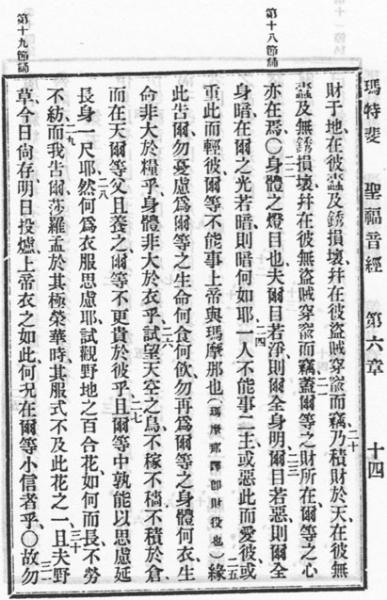 瑪特斐 聖福音經 第六章 十四
第十八節誦
財于地、在彼蠹及銹損壞、幷在彼盜賊穿窬而竊、二十乃積財於天、在彼無
蠹及無銹損壞、幷在彼無盜賊穿窬而竊、二一蓋爾等之財所在、爾等之心
亦在焉、〇二二身體之燈目也、夫爾目若淨、則爾全身明、二三爾目若惡、則爾全
身暗、在爾之光若暗、則暗何如耶、二四一人不能事二主、或惡此而愛彼、或
重此而輕彼、爾等不能事上帝與瑪摩那也(瑪摩那譯卽財役也)二五緣
此吿爾、勿憂慮爲爾等之生命、何食何飲、勿再爲爾等之身體何衣、生
命非大於糧乎、身體非大於衣乎、二六試望天空之鳥、不稼不穡不積於倉、
而在天爾等父且養之、爾等不更貴於彼乎、二七且爾等中孰能以思慮延
長身一尺耶、二八然何爲衣服思慮耶、試觀野地之百合花、如何而長、不勞
不紡、二九而我吿爾、莎羅孟於其極榮華時、其服式不及此花之一、三十且夫野
草今日尙存、明日投爐、上帝衣之如此、何况在爾等小信者乎、〇三一故勿
第十九節誦